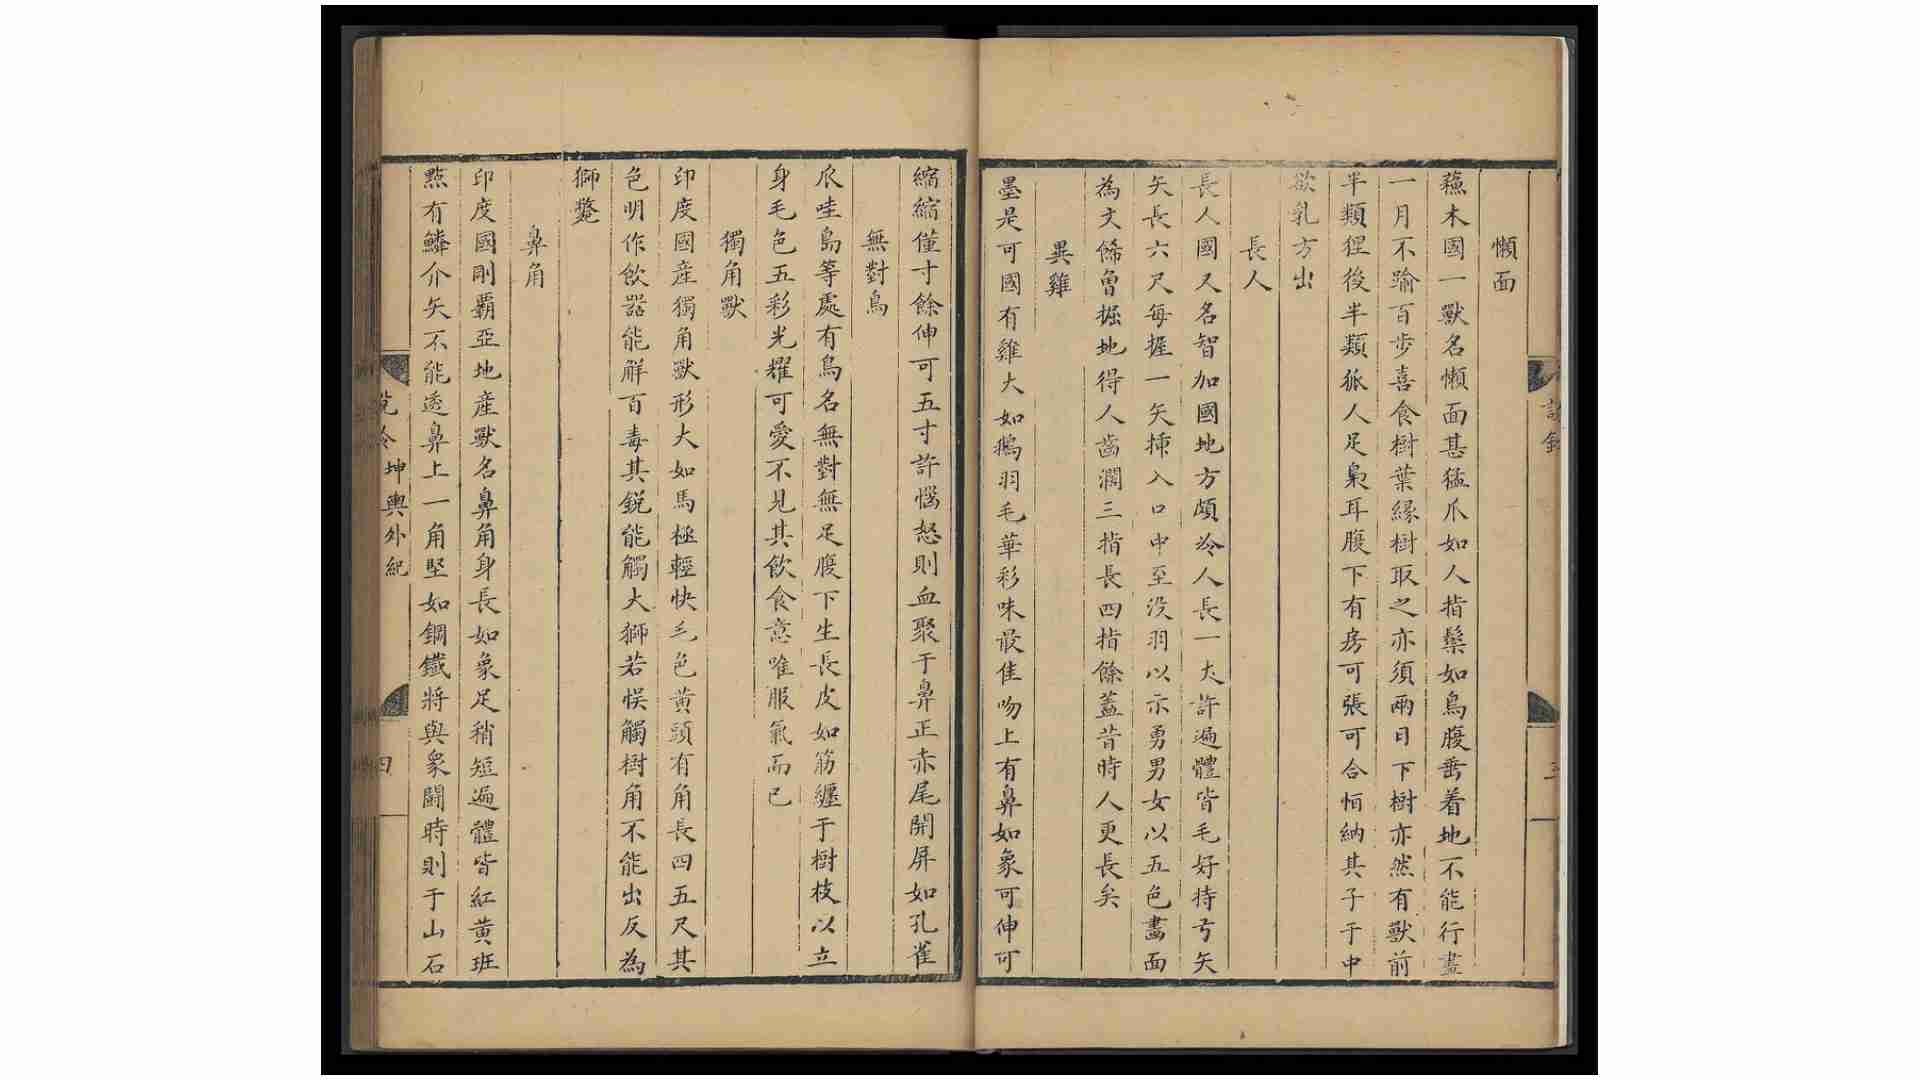 懶面
蘓木國一獸名懶面甚猛爪如人指鬃如馬腹垂着地不能行盡
一月不踰百步喜食樹葉緣樹取之亦須兩日下樹亦然有獸前
半類狸後半類狐人足梟耳腹下有房可張可合恒納其子于中
欲乳方出
長人
長人國又名智加國地方頗冷人長一丈許遍體皆毛好持弓矢
矢長六尺每握一矢揷入口中至没羽以示勇男女以五色畫面
為文餙曾掘地得人齒濶三指長四指餘葢昔時人更長矣
異雞
墨是可國有雞大如鵝羽毛華彩味最佳吻上有鼻如象可伸可
縮縮僅寸餘伸可五寸許惱怒則血聚于鼻正赤尾開屏如孔雀
無對鳥
爪哇島等處有鳥名無對無足腹下生長皮如筋纏于樹枝以立
身毛色五彩光耀可愛不見其飲食意唯服氣而已
獨角獸
印度國産獨角獸形大如馬極輕快毛色黄頭有角長四五尺其
色明作飲器能解百毒其銳能觸大獅若悞觸樹角不能出反為
獅斃
鼻角
印度國剛覇亞地産獸名鼻角身長如象足稍短遍體皆紅黄班
㸃有鱗介矢不能透鼻上一角堅如鋼鐵將與象闘時則于山石
説鈴 坤輿外紀 四